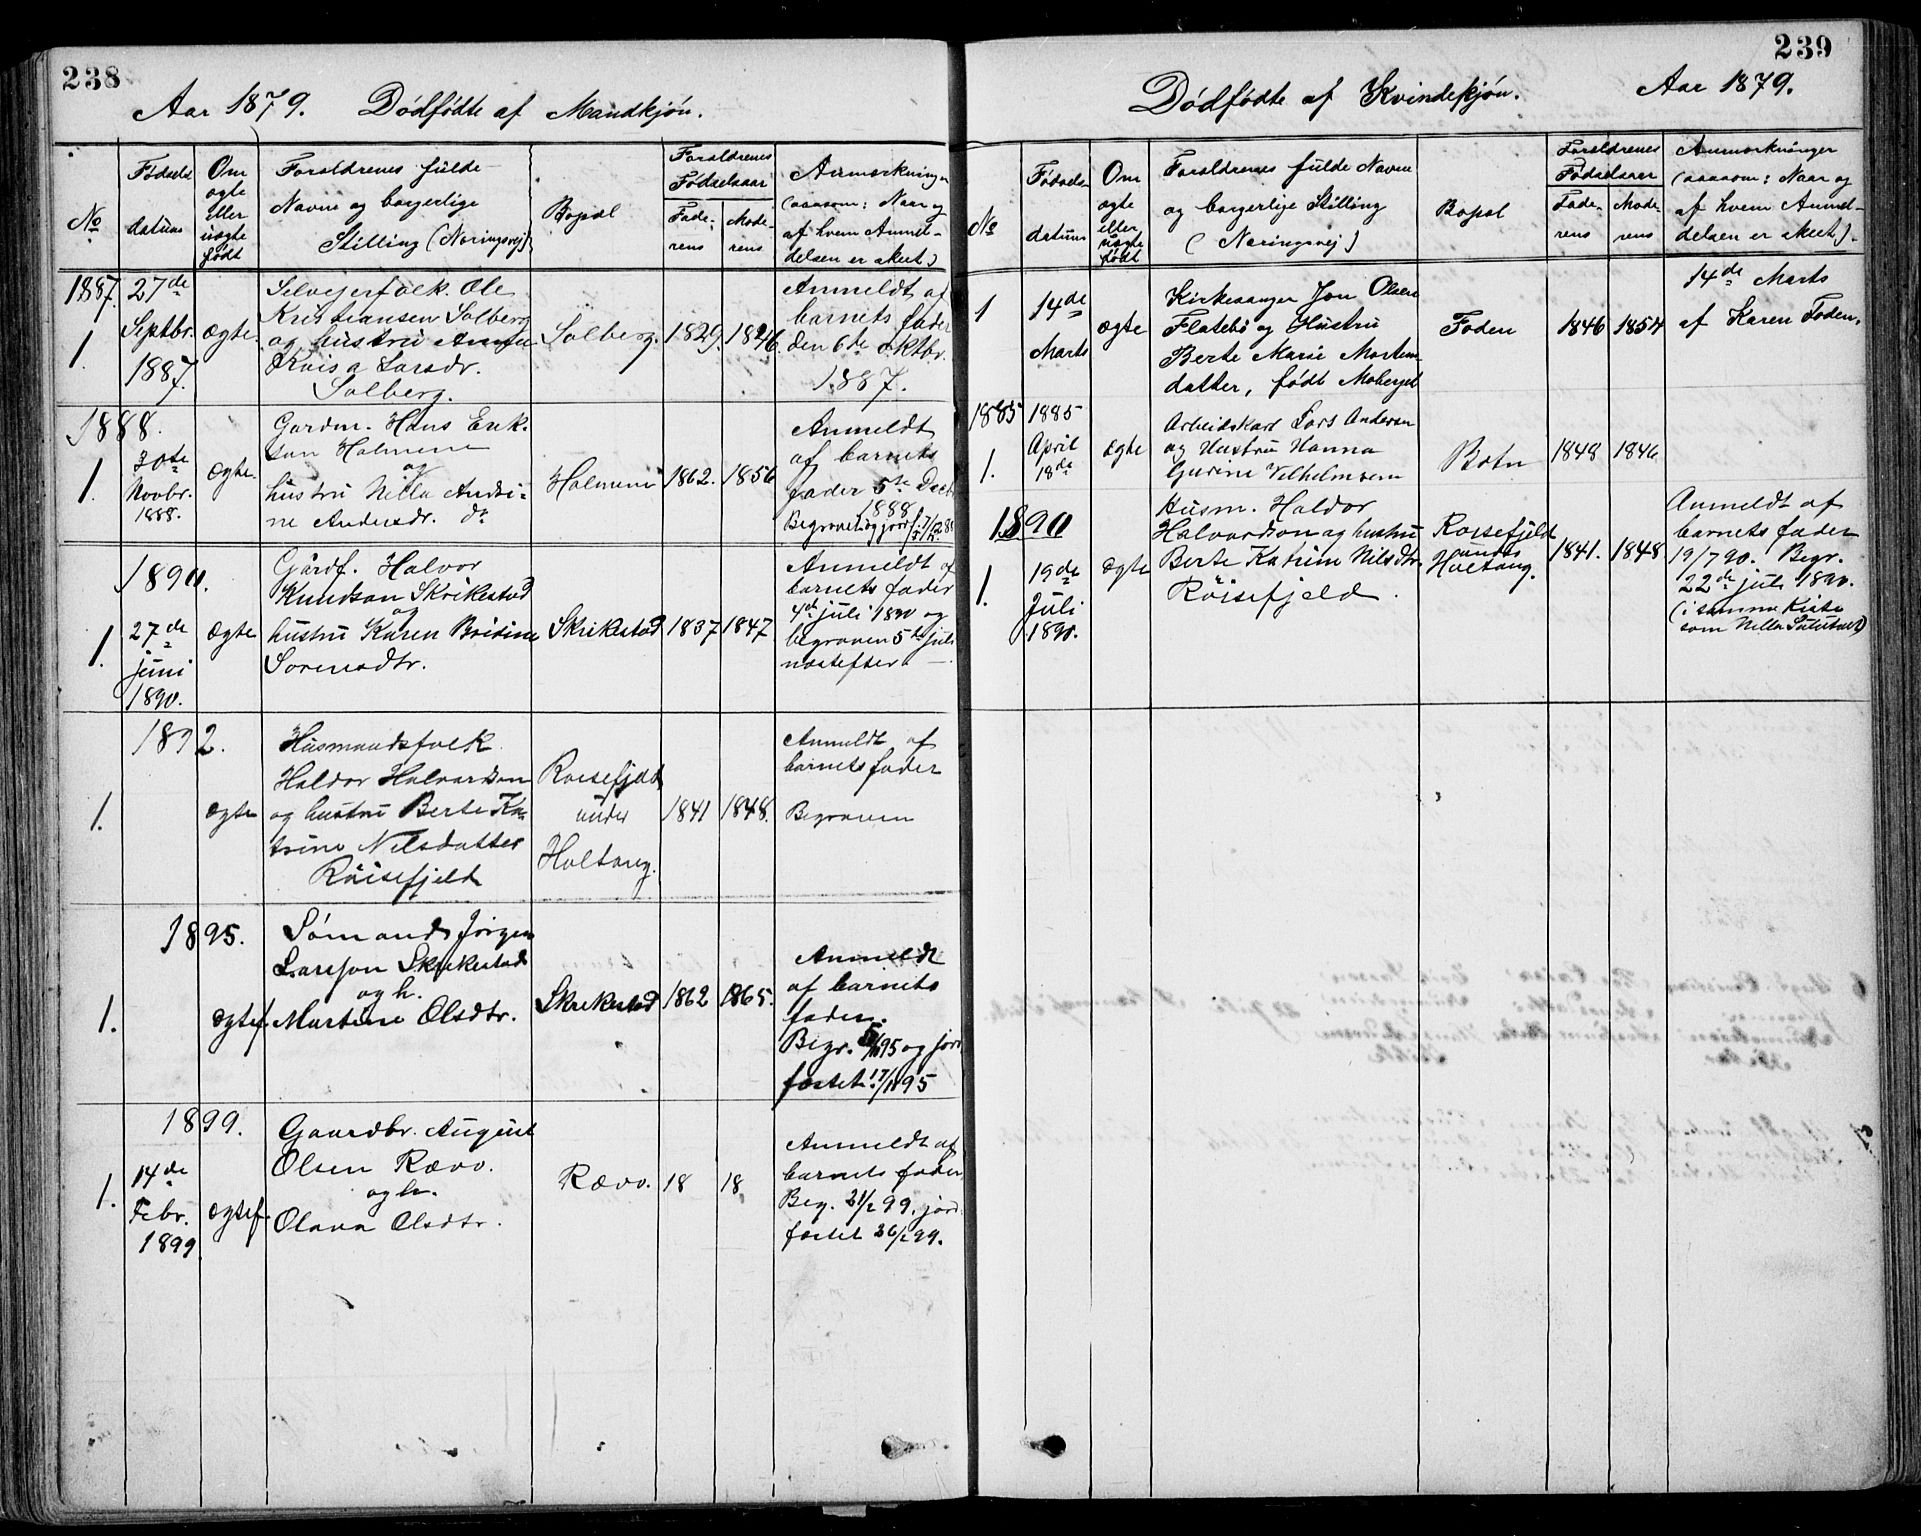 238
Aar 1879. Dødfødte af Mandkjøn.
No
Fødsels
datum
Om
ægte
eller
uægte
født
Forældrenes fulde
Navne og borgerlige
Stilling (Næringsvej)
Bopæl
Forældrenes
Fødselsaar
Fade-
rens
Mode-
rens
Anmærkninger
(saasom: Naar og
af hvem Anmel-
delsen er skeet)
1887.
1.
27de
Septbr.
1887.
ægte.
Selvejerfolk. Ole
Kristiansen Solberg
og hustru Anne
Larsdr.
Solberg.
Solberg.
1829.
1846.
Anmeldt af
barnets fader
den 6te Oktbr.
1887.
1888.
1.
30te
Novbr.
1888.
ægte.
Gardm. Hans Erik-
sen Holmene
og
hustru Nella Andri-
ne Andersdr. do
Holmene
1862.
1856
Anmeldt
af barnets
fader 5te Decb
1888
Begravet og jord
1890.
1.
27de
juni
1890.
ægte
Gårdf. Halvor
Knudsen Skrikestad
og
hustru Karen
Sorensdtr.
Skrikestad
1837
1847
Anmeldt af
barnets fader
4de juli 1890 og
begraven 5te juli
næstefter.
1892.
1.
ægte
Husmandsfolk
Haldor Halvordsen
og hustru Berte Ka-
trine Nilsdatter
Röisefjeld
Roisefjeld
under
Holtang.
1841
1848.
Anmeldt af
barnets fader
Begraven
1895.
1.
ægtef.
Sømand Jörgen
Larsson Skrikestad
og h.
Martine Olsdtr.
Skrikestad
1862
1865.
Anmeldt
af barnets
fader.
Begr. 95 og jord
fæstet 17/11 95
1899.
1.
14de
Febr.
1899.
ægtef.
Gaardbr. August
Olsen Rævo.
og h.
Olava Olsdtr.
Rævo.
18
18
Anmeldt af
barnets fader
Beg. 21/2 99. jord
fæstet 26/2 99.
239
Dødfødte af Kvindekjøn.
Aar 1879.
No
Fødsels-
datum
Om
ægte
eller
uægte
født
Forældrenes fulde Navne
og borgerlige Stilling
(Næringsvej)
Bopæl
Forældrenes
Fødselsaar
Fade-
rens
Mode-
rens
Anmærkninger
(saasom: Naar og
af hvem Anmel-
delsen er skeet).
1
14de
Marts
ægte
Kirkesanger Jon Olsen
Flatebö og Hustru
Berte Marie Morten-
datter, født Moberget
Foden
1846
1854
14de Marts
af Karen Foden.
1885
1.
1885
April
18de
ægte
Arbeidskarl Lars Andersen
og Hustru Hanna
Gurine Vilhelmsen
Botn
1848
1846
1890
1.
19de
Juli
1890.
ægte
Husm. Haldor
Halvordson og hustru
Berte Katrine Nilsdtr.
Röisefjeld.
Roisefjeld
under
Holtang.
1841.
1848
Anmeldt af
barnets fader
19/7 90. Begr.
22de juli 1890.
(i samme Kiste
som Nella